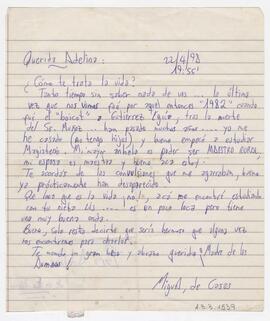 Querida Adelina: 22/4/98
19:55'
¿Cómo te trata la vida?
Tanto tiempo sin saber nada de vos... la última
vez que nos vimos fué por aquel entonces "1982" cuando
fué el "boicot" a Gutierrez, tras la muerte
del Sr. Muñoz... han pasado muchos años.... yo me
he casado (no tengo hijos) y bueno empecé a estudiar
Magisterio. Mi mayor anhelo es poder ser MAESTRO RURAL,
mi esposa es maestra y bueno acá estoy.
Te acordás de las convulsiones que me agarraban, bueno
ya prácticamente han desaparecido.
Qué loca que es la vida ¡no!, acá me encontré estudiando
con tu nieta es un poco loca pero tiene
una muy buena onda.
Bueno, solo resta decirte que sería hermoso que alguna vez
nos encontremos para charlar.
Te mando un gran beso y abrazo querida "Madre de los
Miguel de Casas
A.3.3.1539